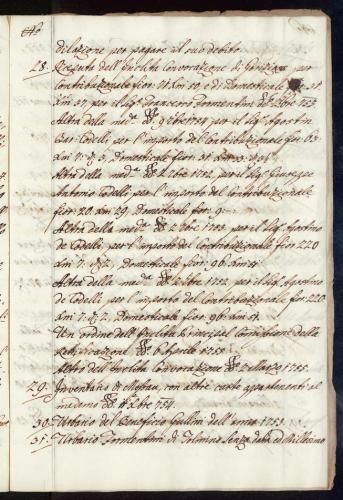 dilazione per pagare il suo debito
28. Receputa dell'Inclita Convocazione di Gorizia per
Contribuzionale fior: 31 Xni 59. e di Domesticale fior: 31.
Xni 37. per il Sig.r Francesco Formentini
Altra della med.ma 9bre 1754 per il Sig.r Agostin
Bar: Codelli per l'importo del Contribuzionale fior: 63.
Xni 7: Domesticale fior: 31
Altra della med.ma 2 Xbre 1752. per il Sig.r Giuseppe
Antonio Codelli per l'importo del Contribuzionale
fior: 20. Xni 29. Domesticale fior: 9:
Altra della med.ma 2 Xbre 1752. per il Sig.r Agostino
de Codelli, per l'importo del Contribuzionale fior 220
Xni 7: Domesticale fior: 96. Xni
Altra della med.ma 2 Xbre 1752. per il Sig.r Agostino
de Codelli per l'importo del Contribuzionale fior: 220
Xni 7: Domesticale fior: 96 Xni
Un ordine dell'Inclita Principal Comissione della
Rettificazione 6 Aprile 1751.
Altro dell'Inclita Convocazione 1755.
29. Inventario di Mossau, con altre carte appartenenti al
medemo Xbre 754.
30. Urbario del Beneficio Gallini dell'anno 1753.
31. Urbario Formentini di Tolmino senza data ed Millesimo